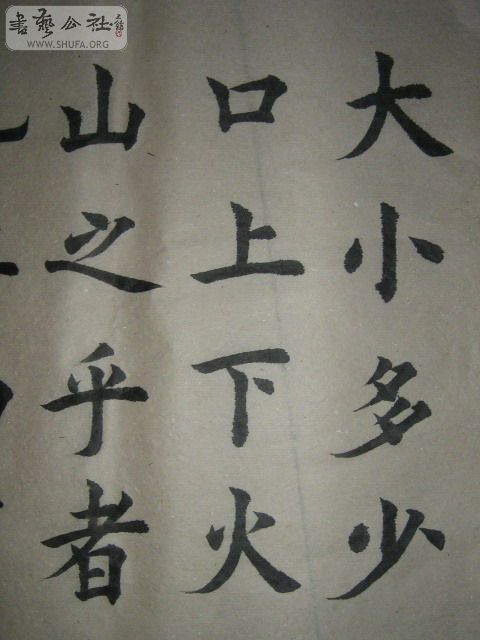 大小多少
口上下火
山之乎者
書藝公社
WWW.SHUFA.ORG